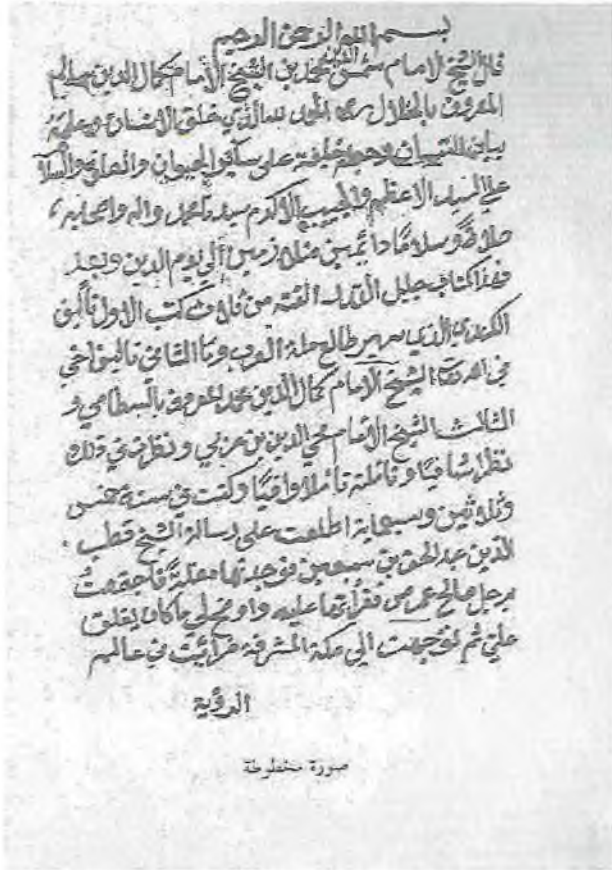 بسم الله الرحمن الرحيم
قال الشيخ الامام شمس الدين محمد بن الشيخ الأمام كمال الدين سالم
المعروف بالخلال الحمد لله الذي خلق الانسان وعلمه
بيان التبيان وجعله خليفة على ساير الحيوان والصلاة والسلام
على السيد الاعظم والحبيب الأكرم سيدنا محمد واله واصحابه
صلاةً وسلامًا دائمين متلازمين الى يوم الدين وبعد
فهذا كتاب جليل القدر الفته من ثلاث كتب الاول تأليف
الكندي الذي سير طالع ملة العرب والثاني تاليف اخي
في الله الشيخ الامام كمال الدين محمد المعروف بالبسطامي و
الثالث الشيخ الامام محي الدين بن عربي ونظرت في ذلك
نظرا شافيًا وتاملته تأملا وافيًا وكنت في سنة خمس
وثلاثين وسبعماية اطلعت على رسالة الشيخ قطب
الدين عبد الحق بن سبعين فوجدتها مغلقة فاجتمعت
برجل صالح بمصر فقرأتها عليه واوضح لي ما كان يغلق
علي ثم توجهت الى مكة المشرفة فرأيت في عالم
الرؤية
صورة مخطوطة